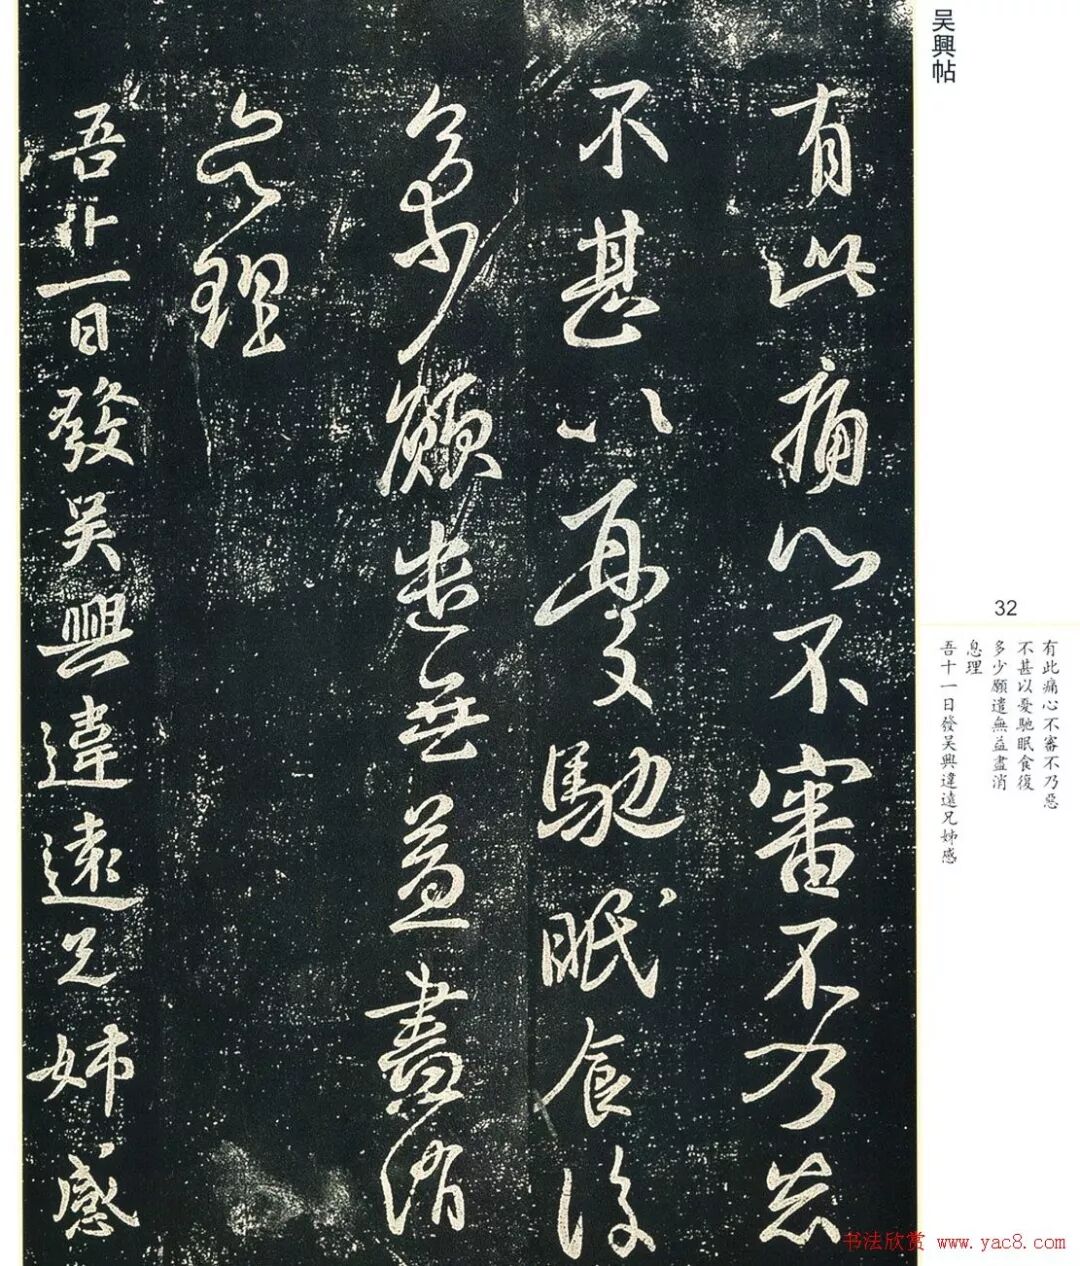 吴興帖
32
有此痛心不審不乃惡
不甚以憂馳眠食復
多少願遣無益盡消
息理
吾十一日發吴興違遠兄姊感
有此痛心不審不乃惡
不甚以憂馳眠食復
多少願遣無益盡消
息理
吾十一日發吴興違遠兄姊感
书法欣赏 www.yac8.com